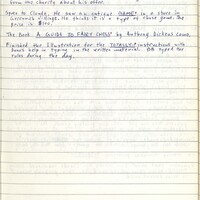 from one charity about his other.
Spoke to Claude. He saw an antique GAMES in a store in
Greenwich Village. He thinks it is a type of chess game. The
price is $200.
The book A GUIDE TO FAIRY CHESS by Anthony Dickens came.
Finished our illustration for the TOTALLY instructions with
help in typing in the written material. typed the
rules during the day.